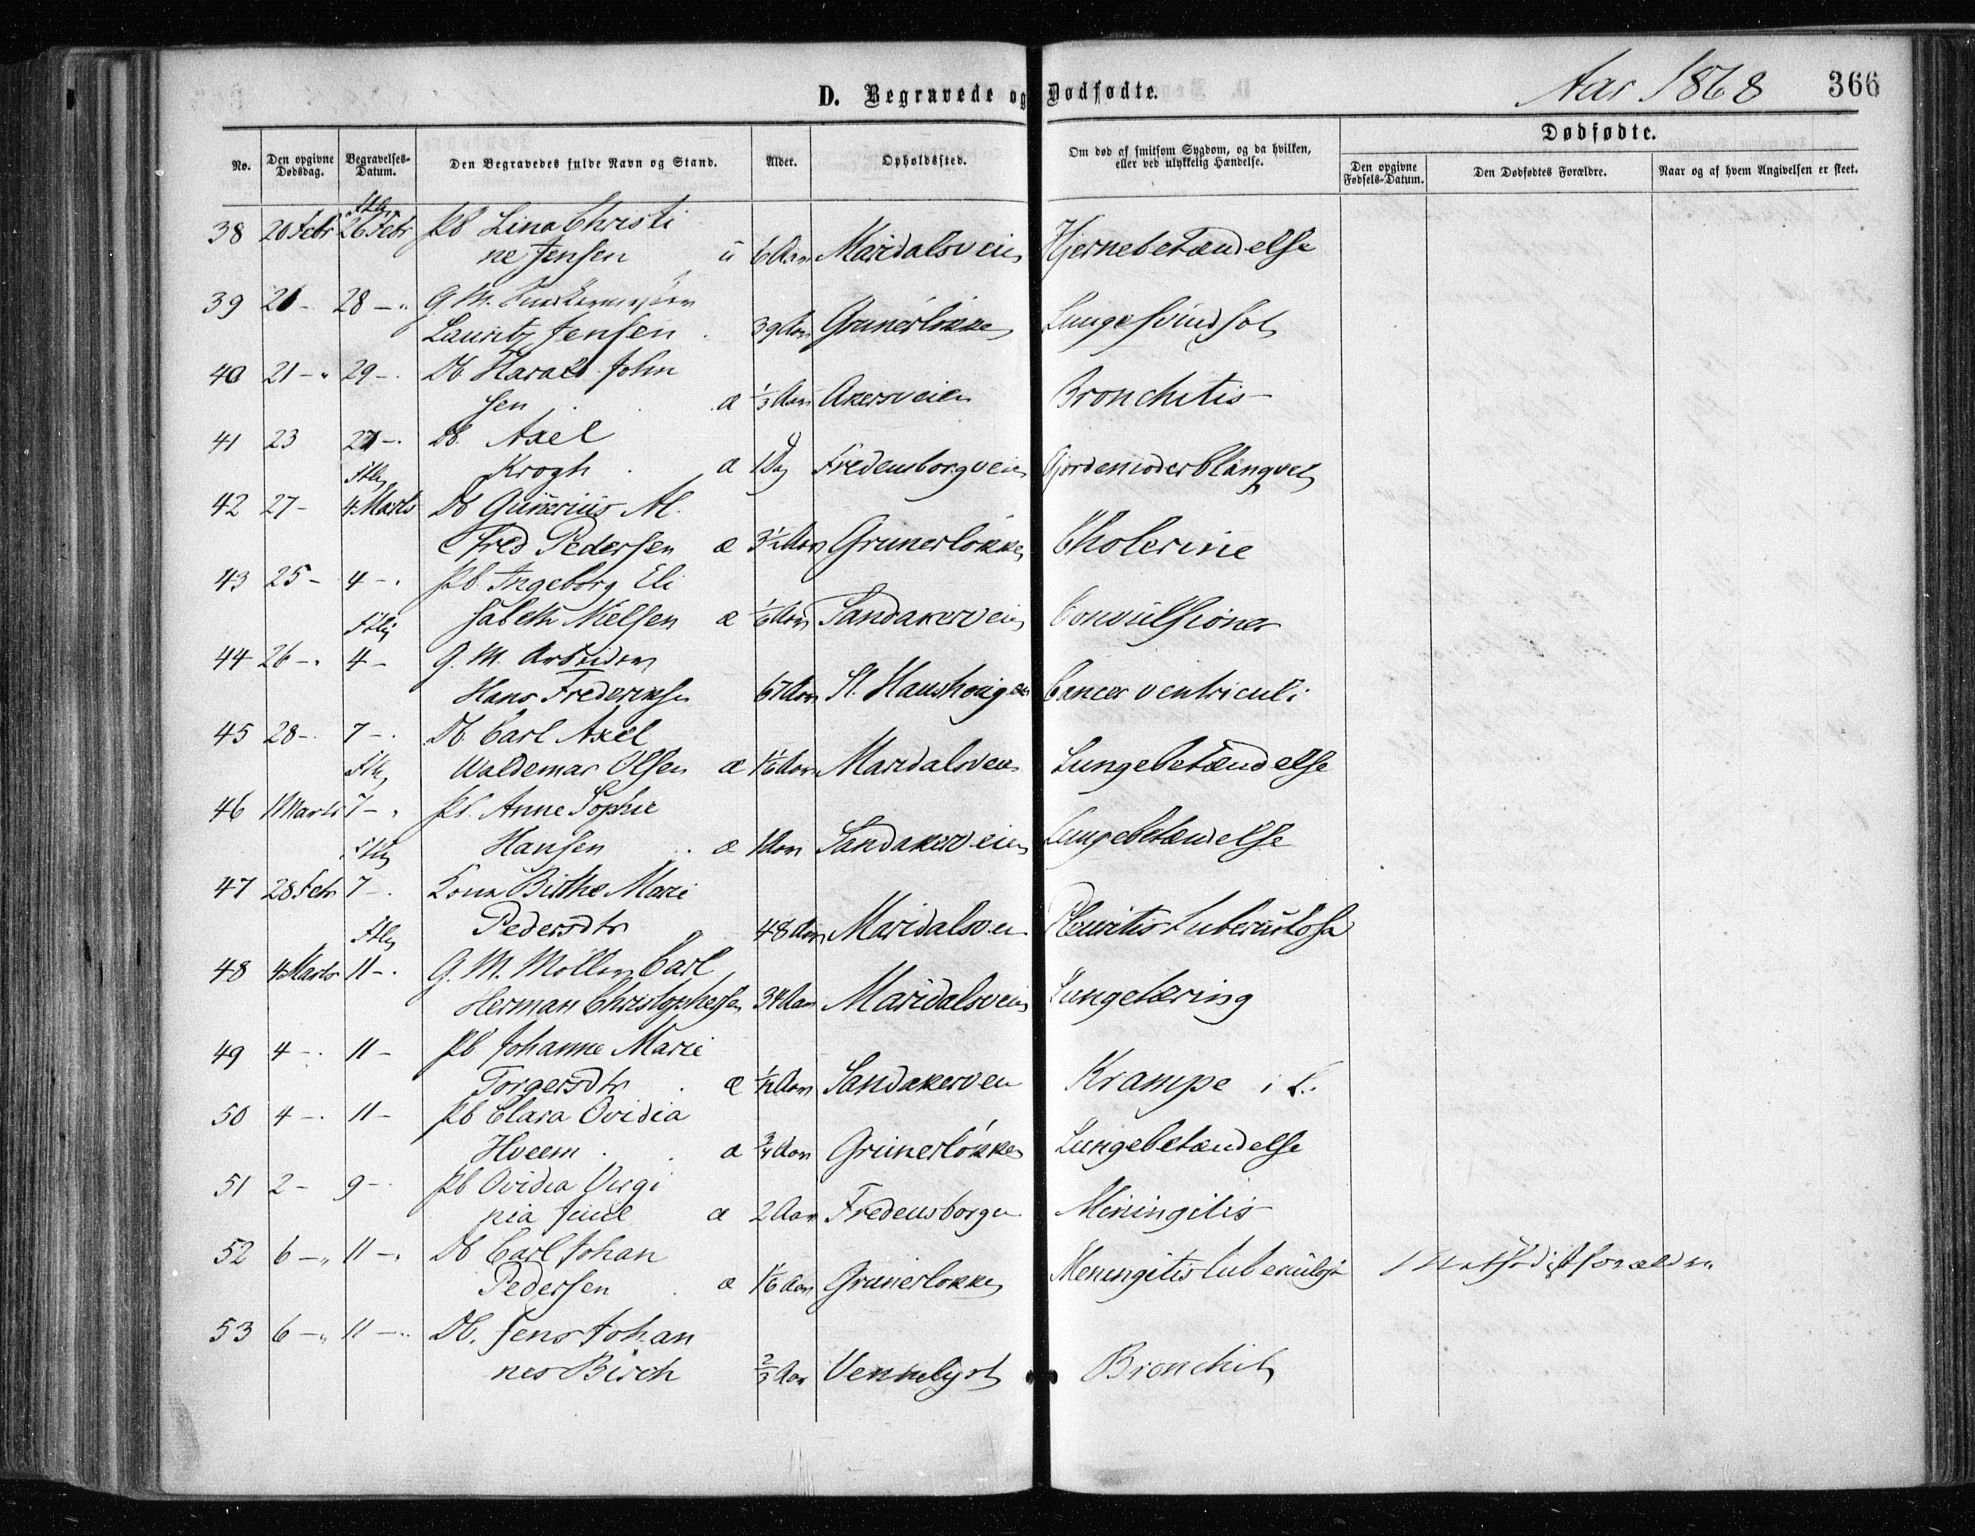 Aar 1868
366
D. Begravede og Dødfødte.
Dødfødte.
No.
Den opgivne Dødsdag.
Begravelses-Datum.
Den Begravedes fulde Navn og Stand.
Alder.
Opholdssted.
Om død af smitsom Sygdom, og da hvilken, eller ved ulykkelig Hændelse.
Den opgivne Fødsels-Datum.
Den Dødfødtes Forældre.
Naar og af hvem Angivelsen er skeet.
38 20 Febr 26 Febr Pb Lina Christi
ne Jensen 6 Aar Maridalsveien Hjernebetændelse
39 28 G. M.
Lauritz Jensen 39 Aar Grunerløkken Lungesvindsot
40 21 29 Db Harald John
sen æ 1/3 Aar Akersveien Bronchitis
41 23 Db. Axel
Krogh æ 1 Dag Fredensborgveien
42 27 4 Marts Db Gunerius Al
fred Pedersen æ 3 1/2 Aar Grunerløkken Cholerine
43 25 4 Pb. Ingeborg Eli
sabeth Nielsen æ 1/6 Aar Sandakerveien Convulsioner
44 26 4 G. M. Arbeider
Hans Frederiksen 67 Aar St. Hanshougen Cancer ventriculi
45 28 7 Db. Carl Axel
Waldemar Olsen æ 1/6 Aar Maridalsveien Lungebetændelse
46 1 Marts 7 Pb. Anne Sophie
Hansen æ 1 Aar Sandakerveien Lungebetændelse
47 28 Febr 7 Kona Birthe Marie
Pedersdtr 48 Aar Maridalsveien Pleuritis tuberculosa
48 4 Marts 11 G. M. Møller Carl
Herman Christophersen 34 Aar Maridalsveien Lungetæring
49 4 11 Pb Johanne Marie
Torgersdtr æ 1/12 Aar Sandakerveien Krampe i L.
50 4 11 Pb Clara Ovidia
Hveem æ 3/4 Aar Grunerløkken Lungebetændelse
51 2 9 Pb Ovidia Virgi
nia Juul æ 2 Aar Fredensborgv Meningitis
52 6 11 Db Carl Johan
Pedersen æ 1/6 Aar Grunerløkken Meningitis tuberculosa Methodistforældre
53 6 11 Db. Jens Johan
nes Birch 2/3 Aar Vennelyst Bronchit